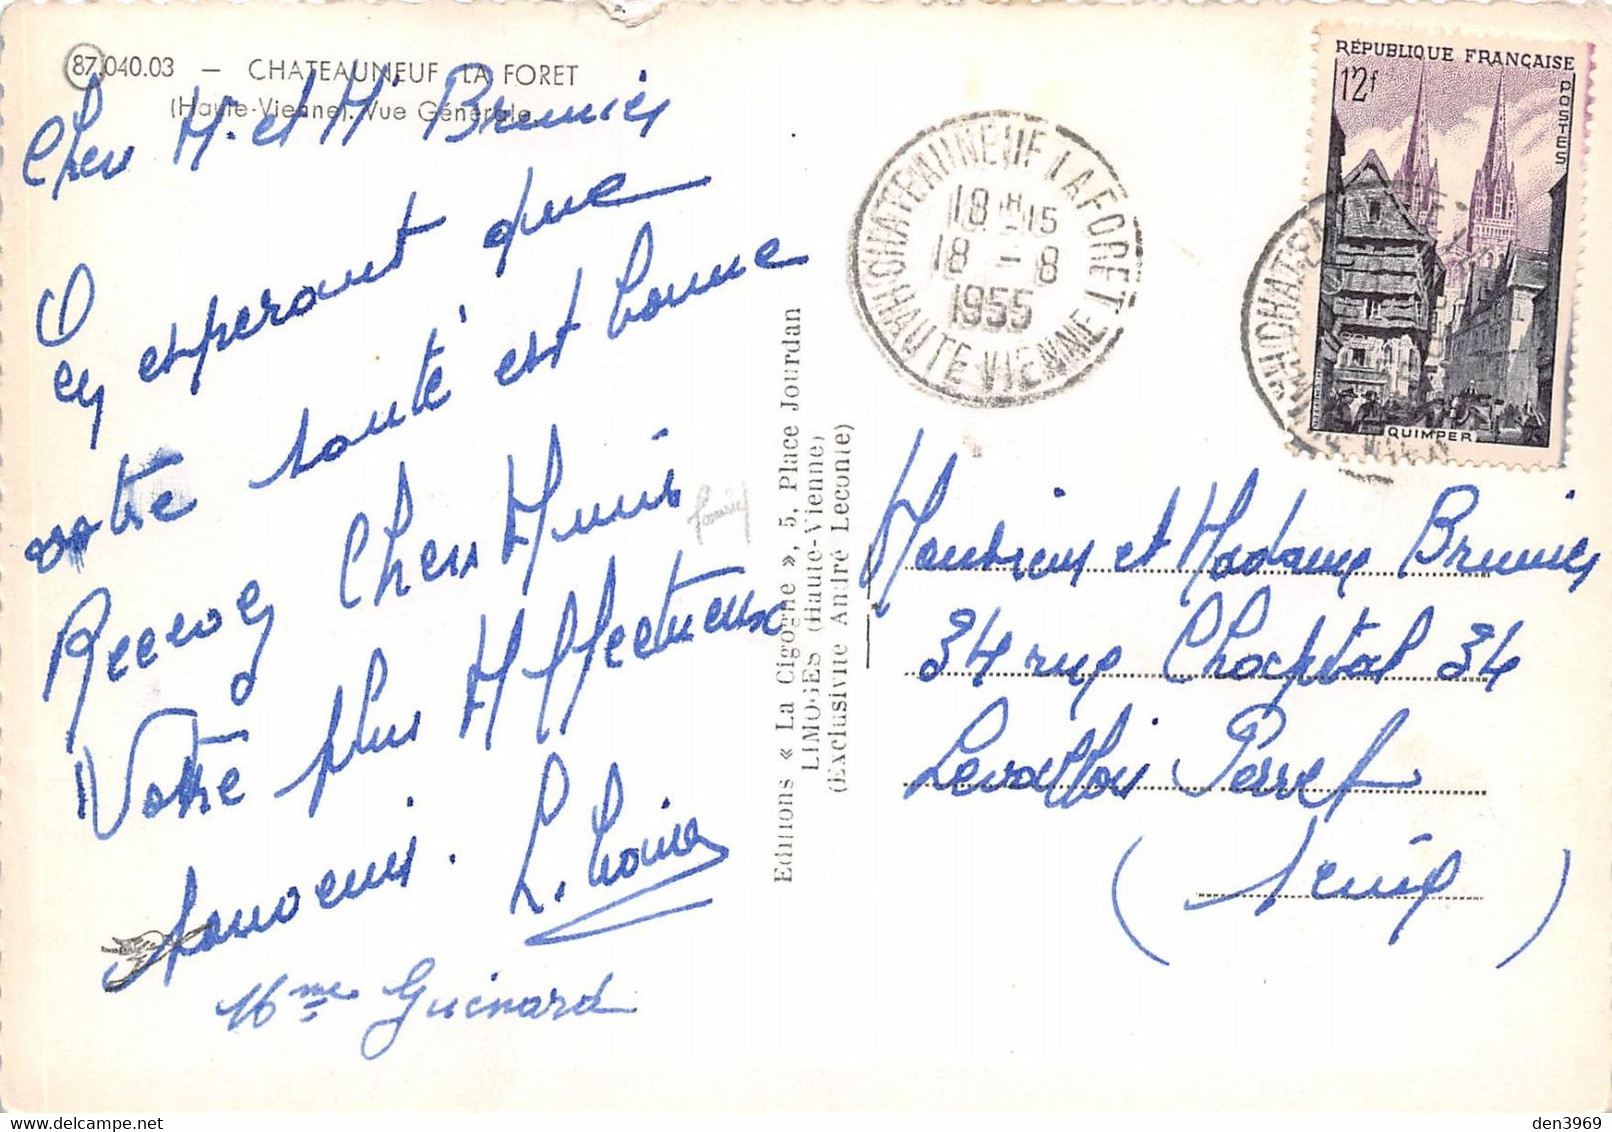 87.040.03 — CHATEAUNEUF LA FORET
(Haute-Vienne). Vue Générale.
Chers M. et M Brunies
En esperant que
votre santé est bonne
Recevez Chers Amis
Votre plus Affectueux
souvenir.
Mme Guénard
Editions « La Cigogne », 5, Place Jourdan
LIMOGES (Haute-Vienne)
(Exclusivité André Leconte)
CHATEAUNEUF LA FORET
18H15
18 - 8
1955
HAUTE-VIENNE
RÉPUBLIQUE FRANÇAISE
12f
POSTES
QUIMPER
Monsieur et Madame Brunies
34 rue Chaptal 34
Levallois Perret
(Seine)
den3969